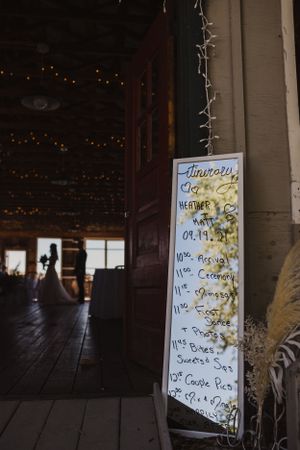 itinerary
HEATHER
MATT
09.19.21
10:30 Arrival
11:00 Ceremony
11:15 Mimosas
11:30 First
Dance
+ Photos
11:45 Bites,
Sweets & Sips
12:15 Couple Pics